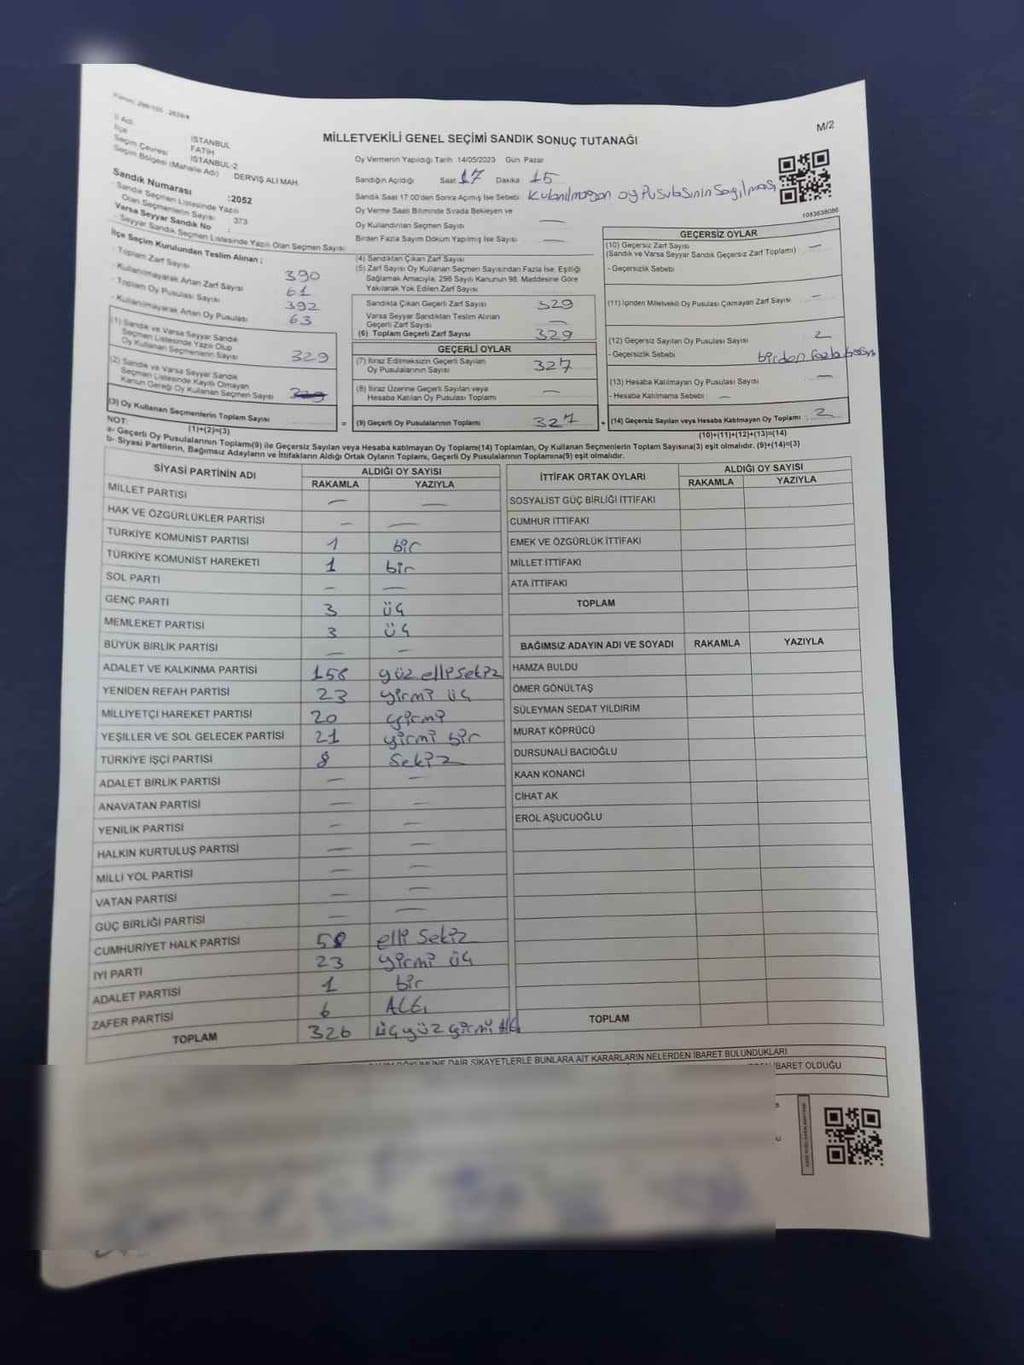 M/2
MİLLETVEKİLİ GENEL SEÇİMİ SANDIK SONUÇ TUTANAĞI
İl Adı İSTANBUL
İlçe FATİH
Seçim Çevresi İSTANBUL-2
Seçim Bölgesi (Mahalle Adı) DERVİŞ ALİ MAH.
Sandık Numarası :2052
Sandık Seçmen Listesinde Yazılı
Olan Seçmenlerin Sayısı : 373
Varsa Seyyar Sandık No :
- Seyyar Sandık Seçmen Listesinde Yazılı Olan Seçmen Sayısı:
Oy Vermenin Yapıldığı Tarih 14/05/2023 Gün Pazar
Sandığın Açıldığı Saat 17 Dakika 15
Sandık Saat 17:00'den Sonra Açılmış İse Sebebi Kulanılmayan oy Pusulasının Sayılması
Oy Verme Saati Bitiminde Sırada Bekleyen ve
Oy Kullandırılan Seçmen Sayısı —
Birden Fazla Sayım Döküm Yapılmış İse Sayısı —
1083638086
İlçe Seçim Kurulundan Teslim Alınan :
- Toplam Zarf Sayısı 390
- Kullanılmayarak Artan Zarf Sayısı 61
- Toplam Oy Pusulası Sayısı 392
- Kullanılmayarak Artan Oy Pusulası 63
(1) Sandık ve Varsa Seyyar Sandık
Seçmen Listesinde Yazılı Olup
Oy Kullanan Seçmenlerin Sayısı 329
(2) Sandık ve Varsa Seyyar Sandık
Seçmen Listesinde Kayıtlı Olmayan
Kanun Gereği Oy Kullanan Seçmen Sayısı
(3) Oy Kullanan Seçmenlerin Toplam Sayısı
(1)+(2)=(3)
(4) Sandıktan Çıkan Zarf Sayısı
(5) Zarf Sayısı Oy Kullanan Seçmen Sayısından Fazla İse, Eşitliği
Sağlamak Amacıyla, 298 Sayılı Kanunun 98. Maddesine Göre
Yakılarak Yok Edilen Zarf Sayısı
Sandıkta Çıkan Geçerli Zarf Sayısı 329
Varsa Seyyar Sandıktan Teslim Alınan
Geçerli Zarf Sayısı —
(6) Toplam Geçerli Zarf Sayısı 329
GEÇERLİ OYLAR
(7) İtiraz Edilmeksizin Geçerli Sayılan
Oy Pusulalarının Sayısı 327
(8) İtiraz Üzerine Geçerli Sayılan veya
Hesaba Katılan Oy Pusulası Toplamı —
= (9) Geçerli Oy Pusulalarının Toplamı 327
GEÇERSİZ OYLAR
(10) Geçersiz Zarf Sayısı —
(Sandık ve Varsa Seyyar Sandık Geçersiz Zarf Toplamı)
- Geçersizlik Sebebi
(11) İçinden Milletvekili Oy Pusulası Çıkmayan Zarf Sayısı —
(12) Geçersiz Sayılan Oy Pusulası Sayısı 2
- Geçersizlik Sebebi birden fazla
(13) Hesaba Katılmayan Oy Pusulası Sayısı —
- Hesaba Katılmama Sebebi —
+ (14) Geçersiz Sayılan veya Hesaba Katılmayan Oy Toplamı 2
(10)+(11)+(12)+(13)=(14)
NOT:
a- Geçerli Oy Pusulalarının Toplamı(9) ile Geçersiz Sayılan veya Hesaba katılmayan Oy Toplamı(14) Toplamları, Oy Kullanan Seçmenlerin Toplam Sayısına(3) eşit olmalıdır. (9)+(14)=(3)
b- Siyasi Partilerin, Bağımsız Adayların ve İttifakların Aldığı Ortak Oyların Toplamı, Geçerli Oy Pusulalarının Toplamına(9) eşit olmalıdır.
SİYASİ PARTİNİN ADI ALDIĞI OY SAYISI
RAKAMLA YAZIYLA
MİLLET PARTİSİ — —
HAK VE ÖZGÜRLÜKLER PARTİSİ — —
TÜRKİYE KOMÜNİST PARTİSİ 1 bir
TÜRKİYE KOMÜNİST HAREKETİ 1 bir
SOL PARTİ — —
GENÇ PARTİ 3 üç
MEMLEKET PARTİSİ 3 üç
BÜYÜK BİRLİK PARTİSİ — —
ADALET VE KALKINMA PARTİSİ 158 yüz elli sekiz
YENİDEN REFAH PARTİSİ 23 yirmi üç
MİLLİYETÇİ HAREKET PARTİSİ 20 yirmi
YEŞİLLER VE SOL GELECEK PARTİSİ 21 yirmi bir
TÜRKİYE İŞÇİ PARTİSİ 8 Sekiz
ADALET BİRLİK PARTİSİ — —
ANAVATAN PARTİSİ — —
YENİLİK PARTİSİ — —
HALKIN KURTULUŞ PARTİSİ — —
MİLLİ YOL PARTİSİ — —
VATAN PARTİSİ — —
GÜÇ BİRLİĞİ PARTİSİ — —
CUMHURİYET HALK PARTİSİ 58 elli Sekiz
İYİ PARTİ 23 yirmi üç
ADALET PARTİSİ 1 bir
ZAFER PARTİSİ 6 Altı
TOPLAM 326 üçyüz yirmi altı
İTTİFAK ORTAK OYLARI ALDIĞI OY SAYISI
RAKAMLA YAZIYLA
SOSYALİST GÜÇ BİRLİĞİ İTTİFAKI
CUMHUR İTTİFAKI
EMEK VE ÖZGÜRLÜK İTTİFAKI
MİLLET İTTİFAKI
ATA İTTİFAKI
TOPLAM
BAĞIMSIZ ADAYIN ADI VE SOYADI RAKAMLA YAZIYLA
HAMZA BULDU
ÖMER GÖNÜLTAŞ
SÜLEYMAN SEDAT YILDIRIM
MURAT KÖPRÜCÜ
DURSUNALİ BACIOĞLU
KAAN KONANCİ
CİHAT AK
EROL AŞUCUOĞLU
TOPLAM
DÖKÜMÜNE DAİR ŞİKAYETLERLE BUNLARA AİT KARARLARIN NELERDEN İBARET BULUNDUKLARI
İBARET OLDUĞU